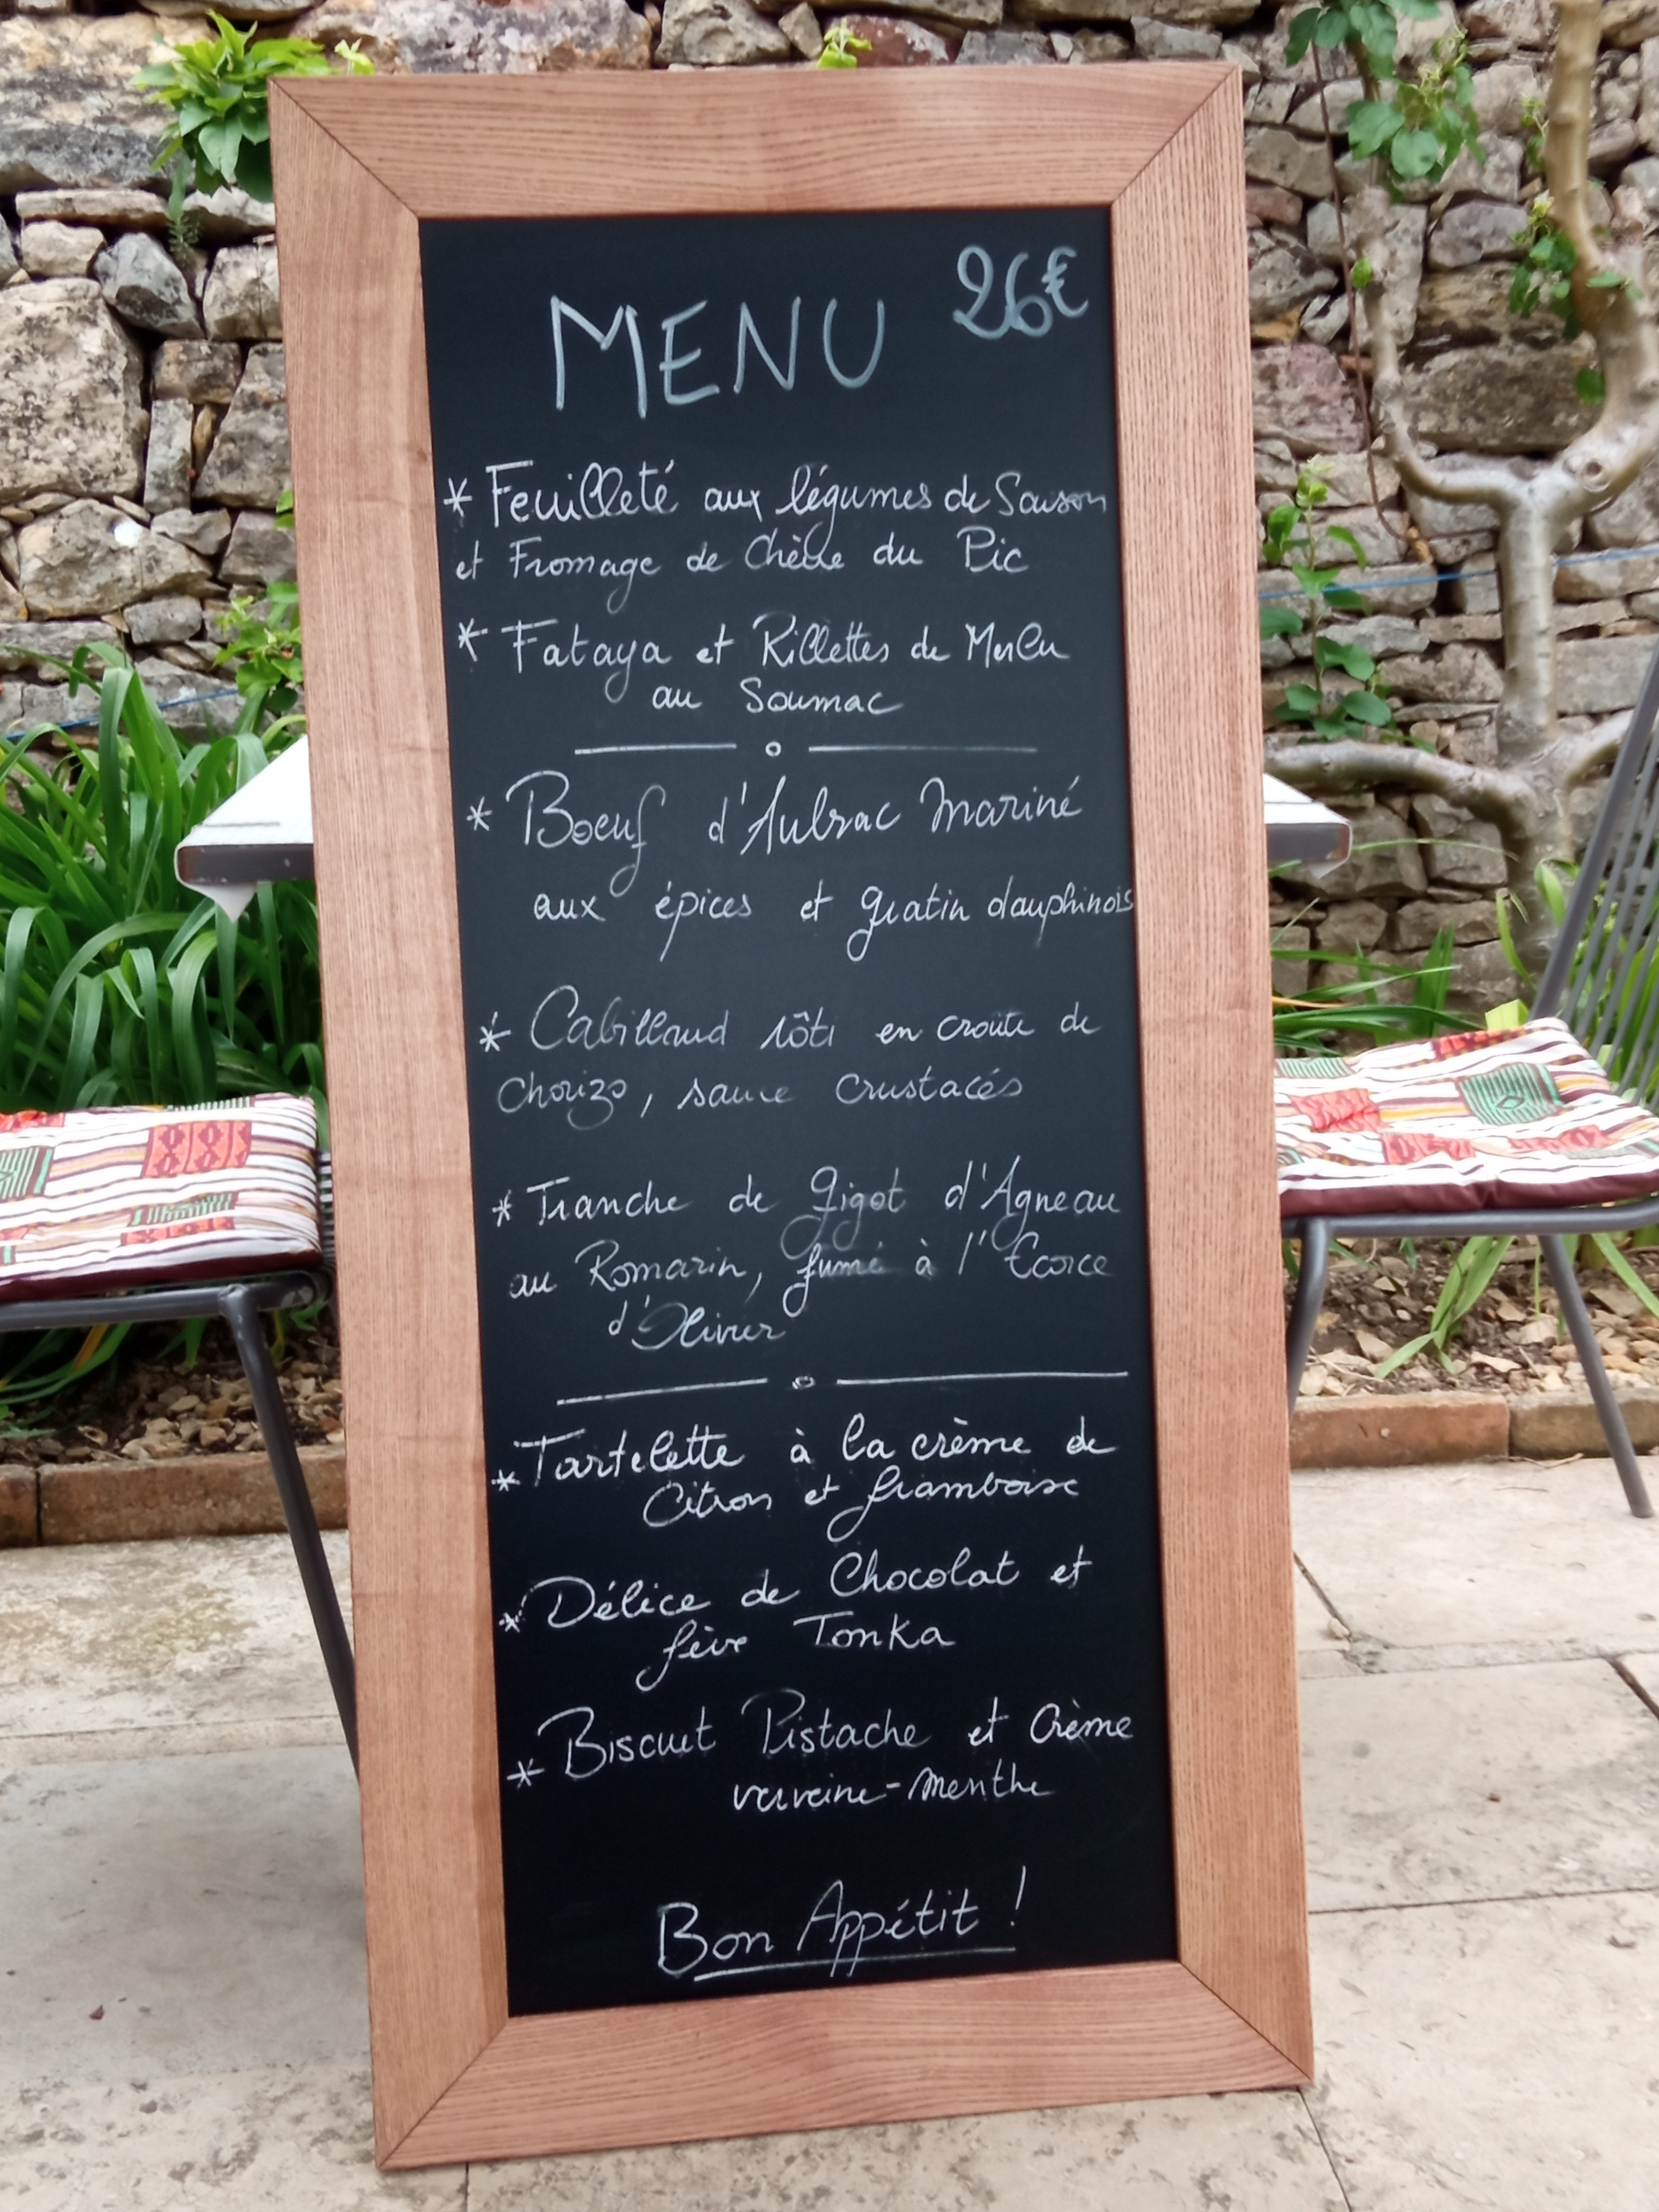 MENU 26€
* Feuilleté aux légumes de Saison
et Fromage de Chèvre du Pic
* Fataya et Rillettes de Merlu
au Soumac
* Boeuf d'Aubrac Mariné
aux épices et gratin dauphinois
* Cabillaud rôti en croute de
Chorizo, sauce Crustacés
* Tranche de Gigot d'Agneau
au Romarin, fumé à l'Ecorce
d'Olivier
* Tartelette à la crème de
Citron et framboise
* Délice de Chocolat et
fève Tonka
* Biscuit Pistache et Crème
verveine-Menthe
Bon Appétit !